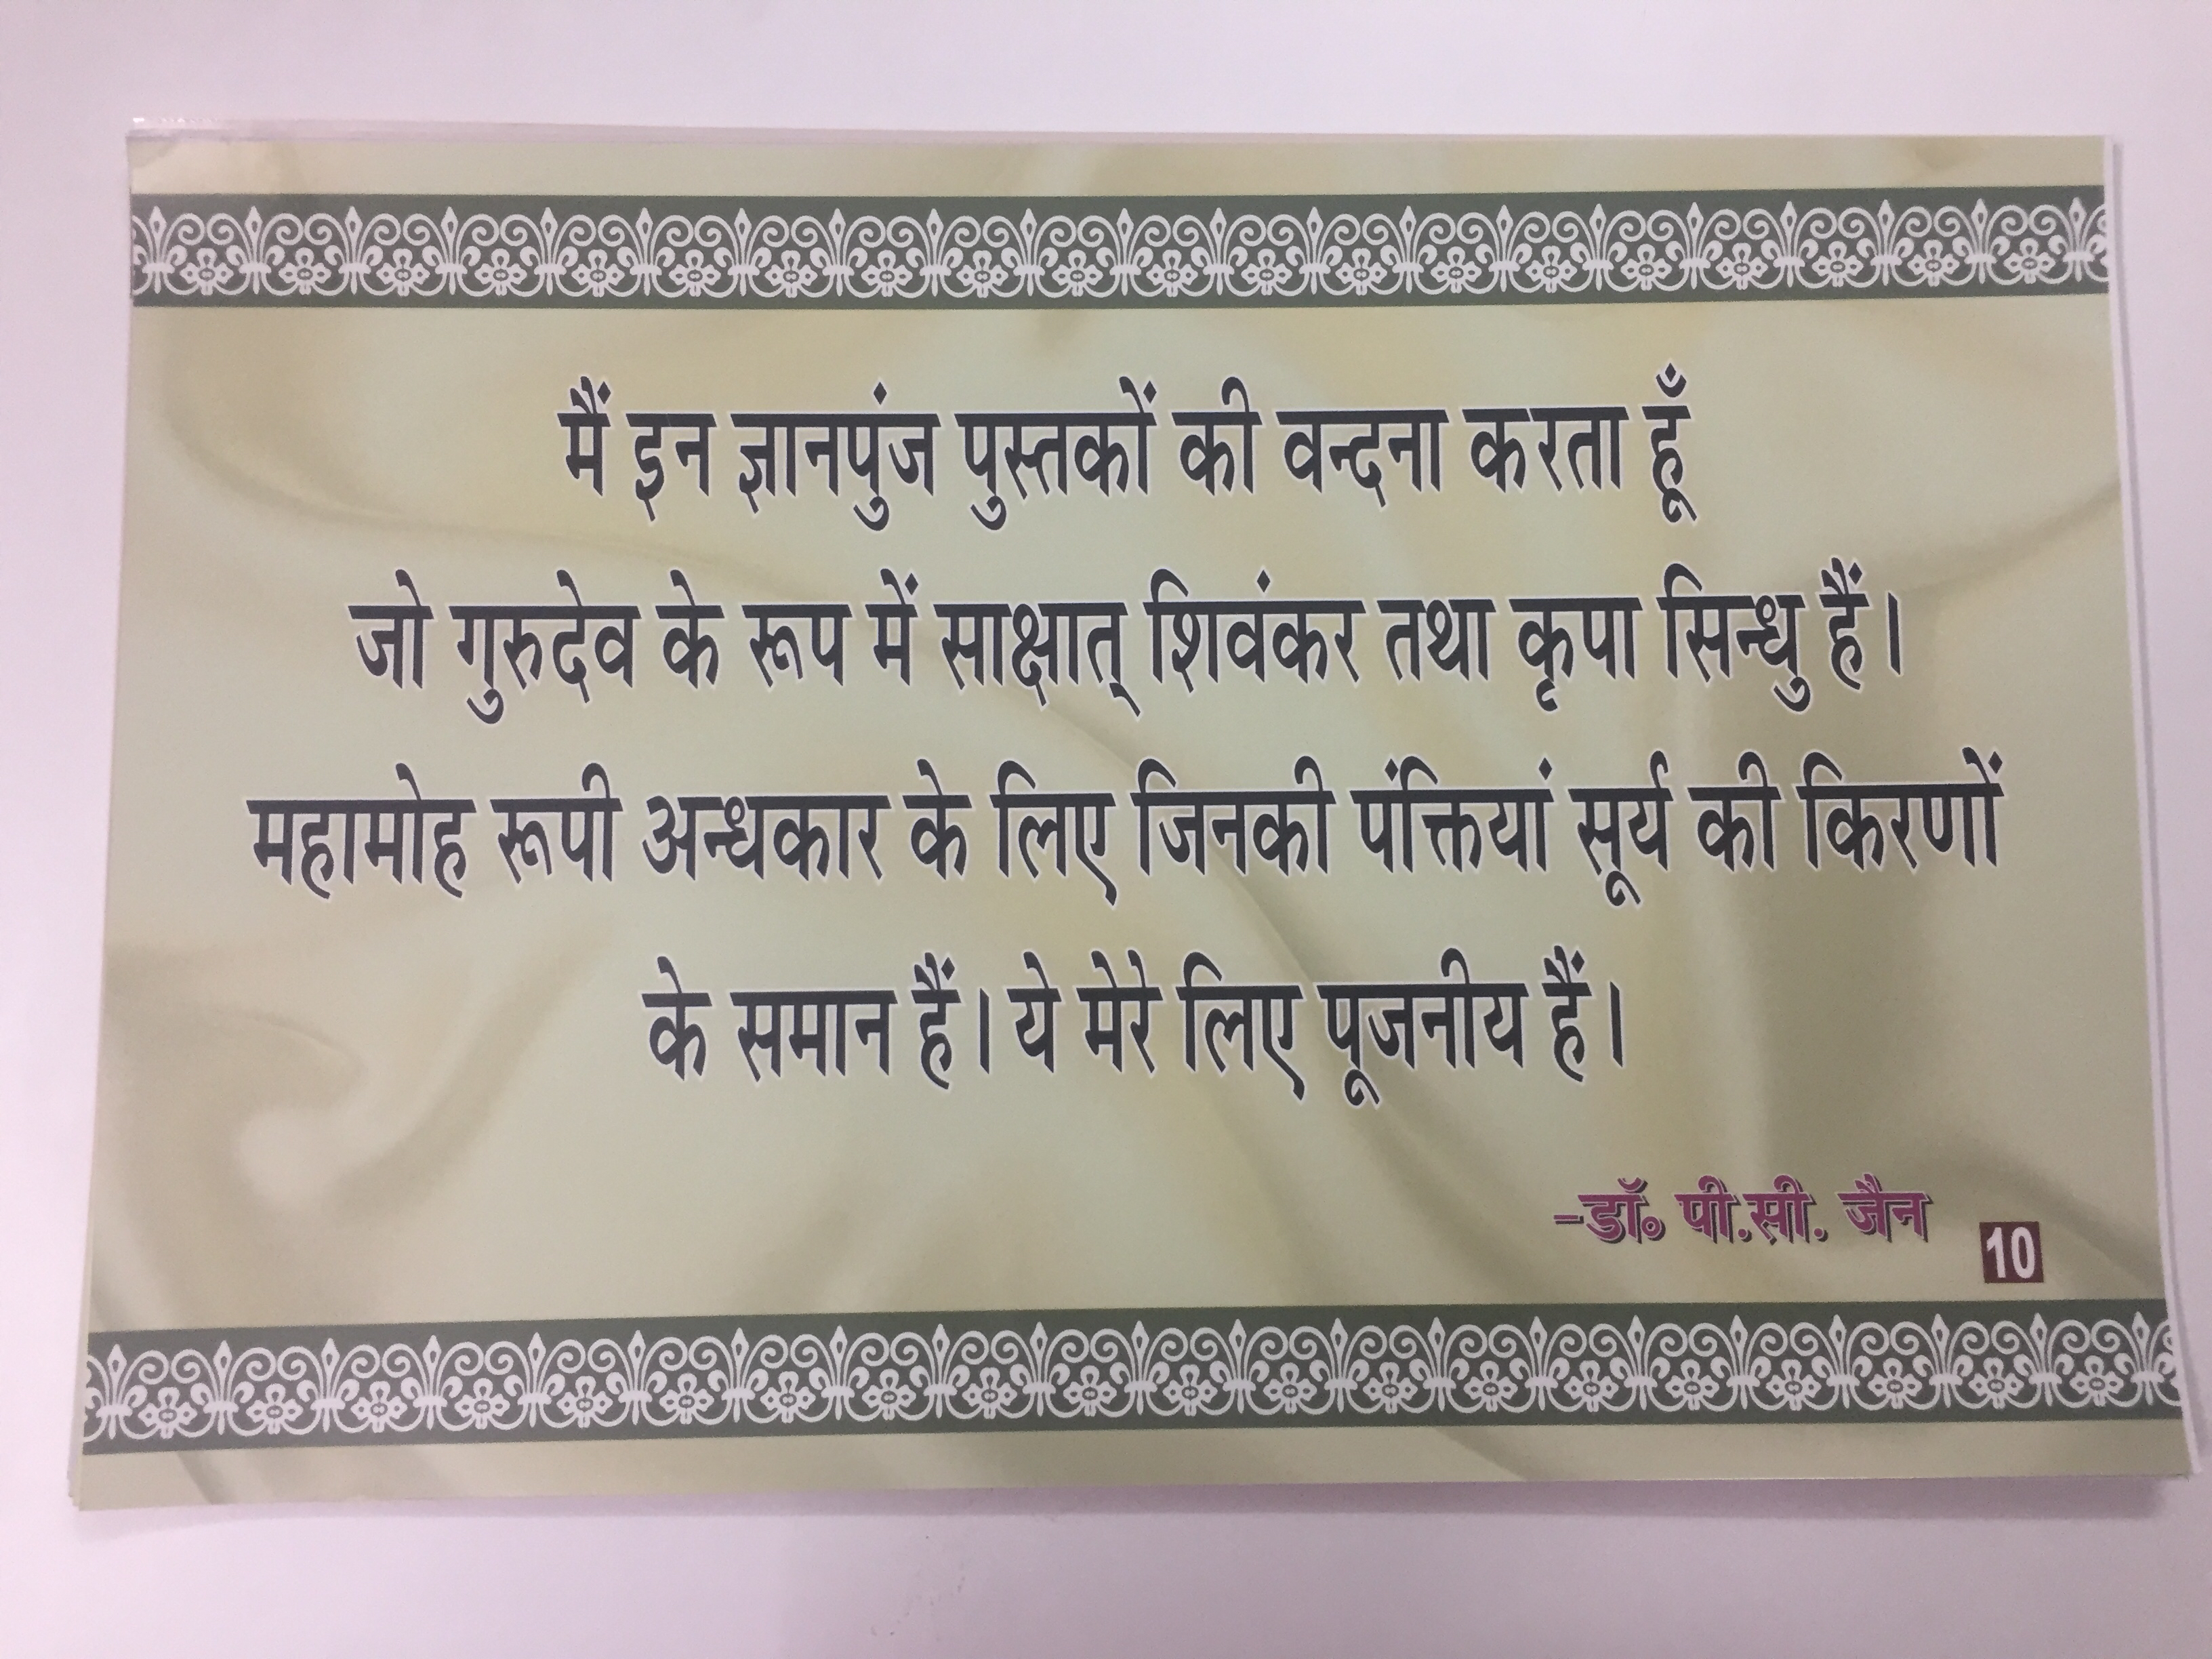 मैं इन ज्ञानपुंज पुस्तकों की वन्दना करता हूँ
जो गुरुदेव के रूप में साक्षात् शिवंकर तथा कृपा सिन्धु हैं।
महामोह रूपी अन्धकार के लिए जिनकी पंक्तियां सूर्य की किरणों
के समान हैं। ये मेरे लिए पूजनीय हैं।
-डॉ० पी.सी. जैन
10